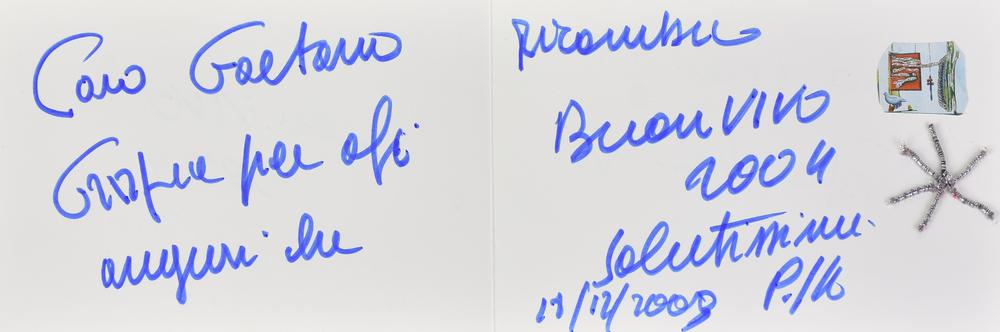 Caro Gaetano
Grazie per gli
auguri che
ricambio
Buon VIVO
2004
Salutissimi
P./
17/12/2003